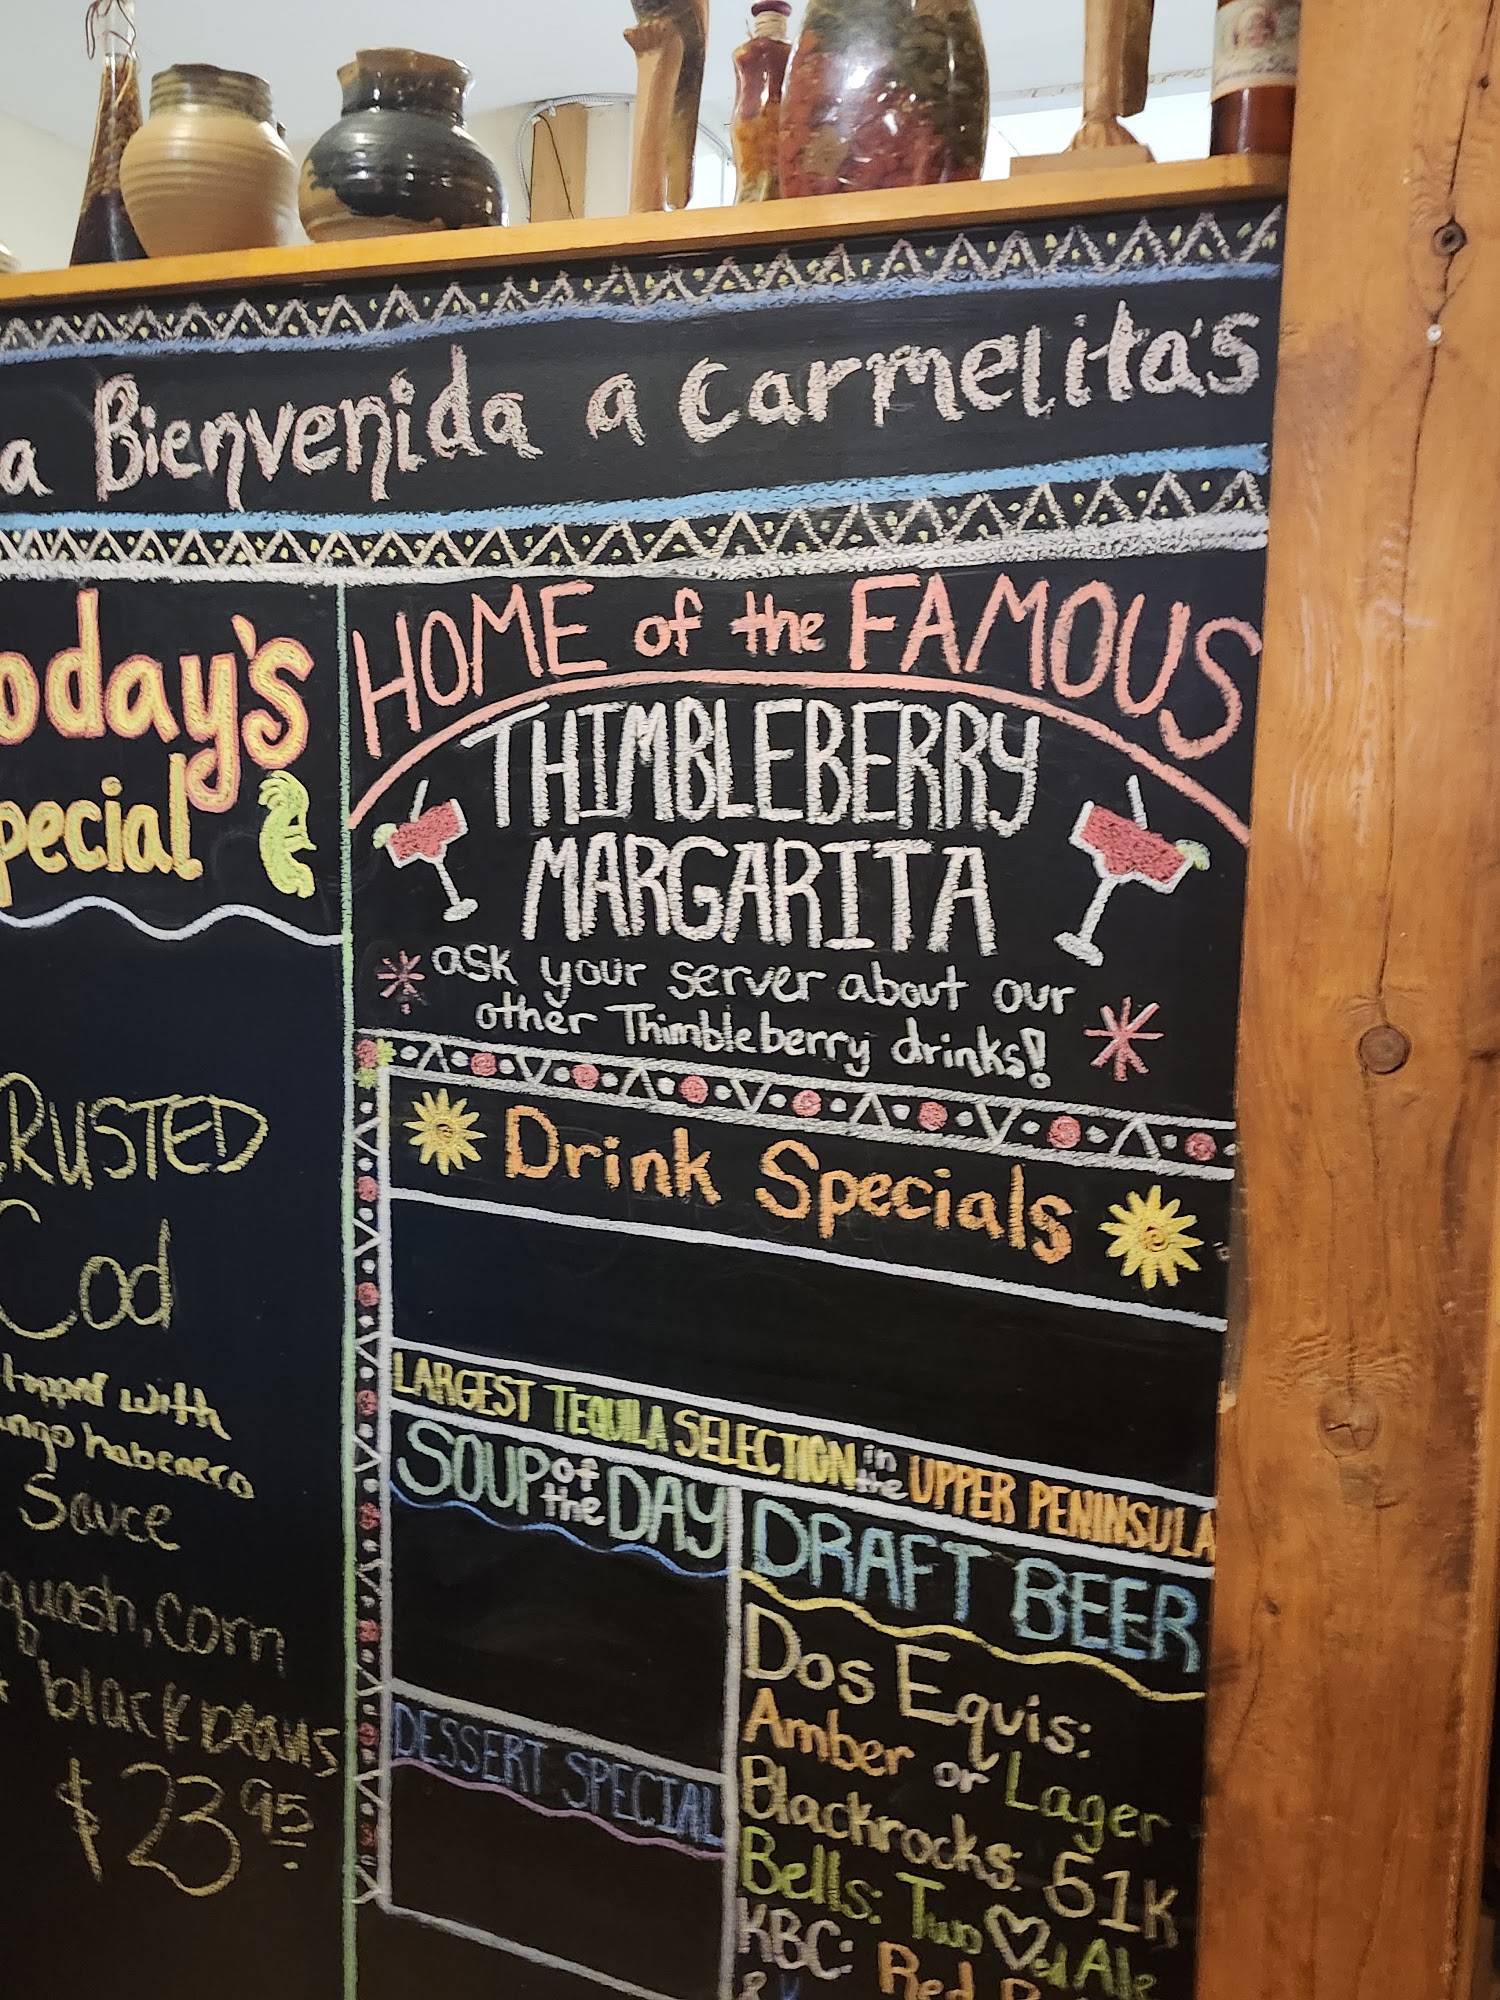 a Bienvenida a Carmelita's
oday's
pecial
RUSTED
Cod
topped with
ango habenero
Sauce
quash, corn
black beans
$23 95
HOME of the FAMOUS
THIMBLEBERRY
MARGARITA
ask your server about our
other Thimbleberry drinks!
Drink Specials
LARGEST TEQUILA SELECTION in the UPPER PENINSULA
SOUP of the DAY
DESSERT SPECIAL
DRAFT BEER
Dos Equis:
Amber or Lager
Blackrocks: 51K
Bells: Two ♡ed Ale
KBC: Red